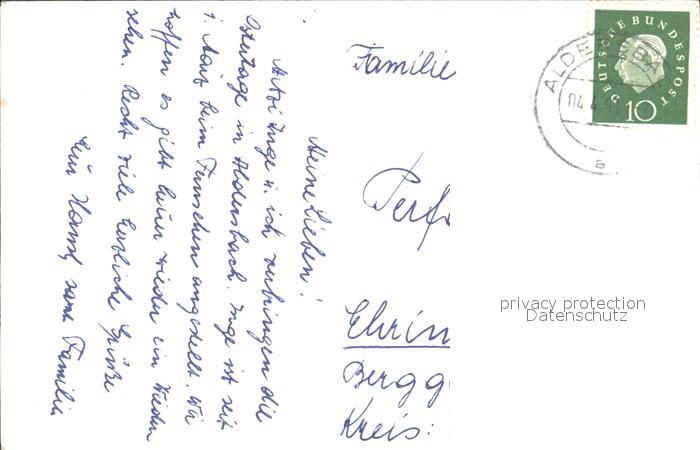 Meine Lieben!
Inge u. ich verbringen die
Ostertage in Aldersbach. Inge ist seit
1. März beim Fernsehen angestellt. Wir
hoffen es gibt heuer wieder ein Wieder
sehen. Recht viele herzliche Grüße
Eur Hansl samt Familie
Familie
Ehrin
Bergg
Kreis:
DEUTSCHE BUNDESPOST
10
ALDERSBA
04.4.
a
privacy protection
Datenschutz